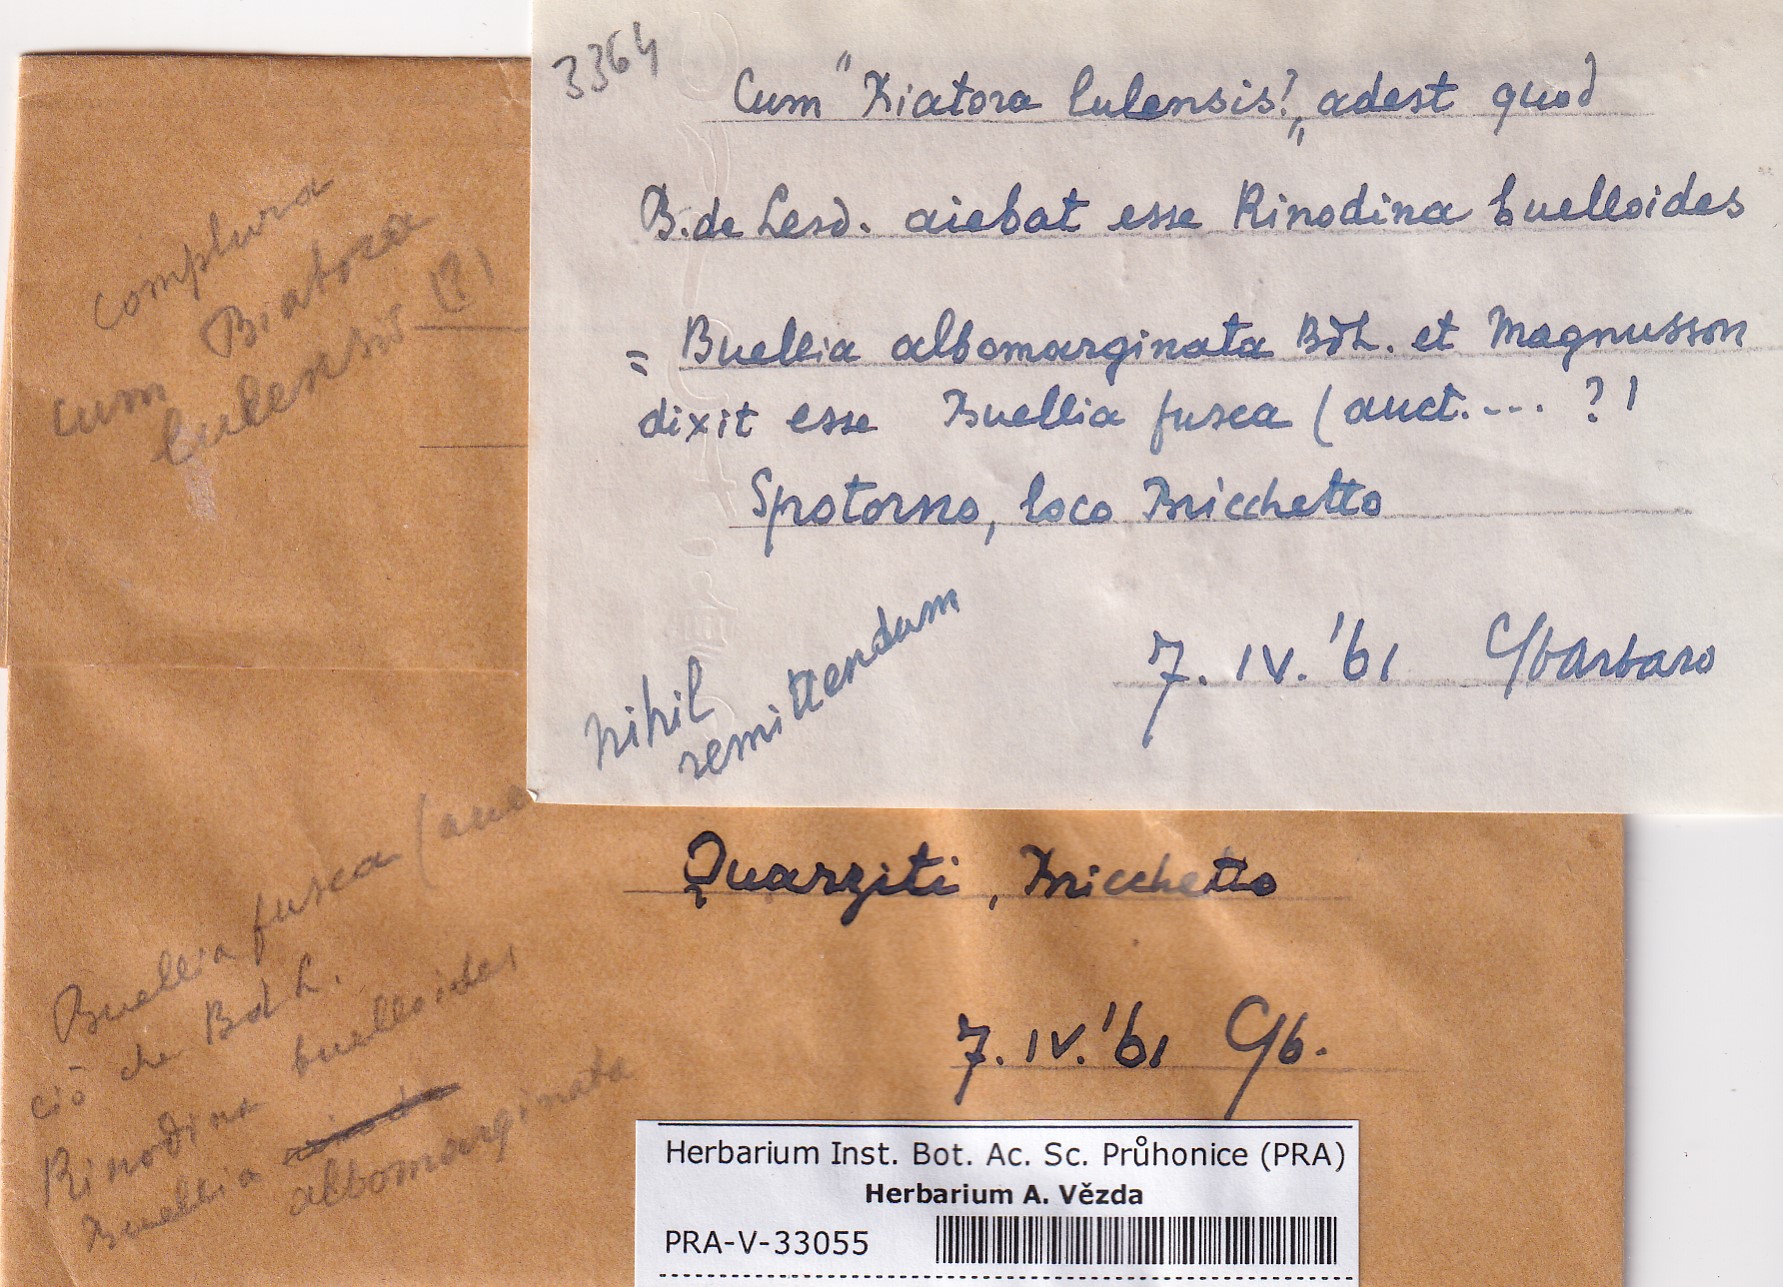 3364
Cum "Biatora lulensis?„ adest quod
B. de Lesd. aiebat esse Rinodina buelloides
= Buellia albomarginata BdL. et Magnusson
dixit esse Buellia fusca (auct.... ?)
Spotorno, loco Bricchetto
nihil
remittendum
7. IV. '61 C/barbaro
complura
Biatora
cum
lulensis (?)
Buellia fusca (auc
ciò che BdL.
Rinodina buelloides
Buellia
albomarginata
Quarziti, Bricchetto
7. IV. '61 C/b.
Herbarium Inst. Bot. Ac. Sc. Průhonice (PRA)
Herbarium A. Vězda
PRA-V-33055